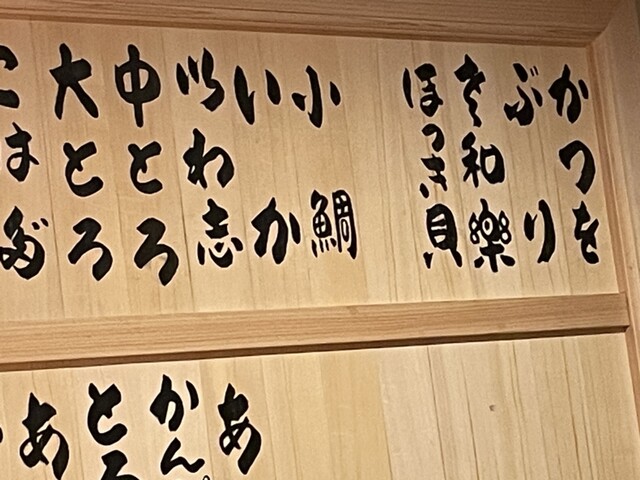 かつを
ぶり
さ和樂
ほっき貝
小鯛
いか
以わ志
中とろ
大とろ
こはだ
あ
かん
とろ
あ